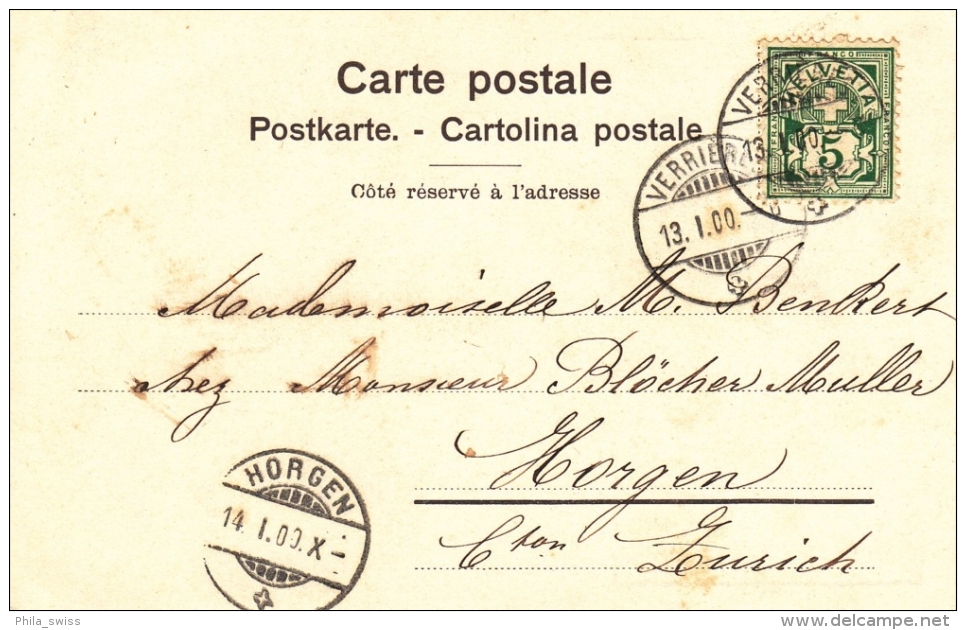 Carte postale
Postkarte. - Cartolina postale
Côté réservé à l'adresse
FRANCO
HELVETIA
5
13. I. 00.–
VERRIÈR
13. I. 00.–
Mademoiselle M. Benkert
chez Monsieur Blöcher Muller
Horgen
Cton Zurich
HORGEN
14. I. 00. X –
Phila_swiss
delcampe.net